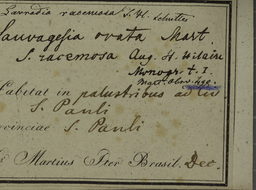 Lavradia racemosa S. H.
Sauvagesia ovata Mart.
S. racemosa Aug. H. Hilaire
Monogr. t. I
Habitat in palustribus ad
S. Pauli
Provinciae S. Pauli
Martius Iter Brasil. Dec.